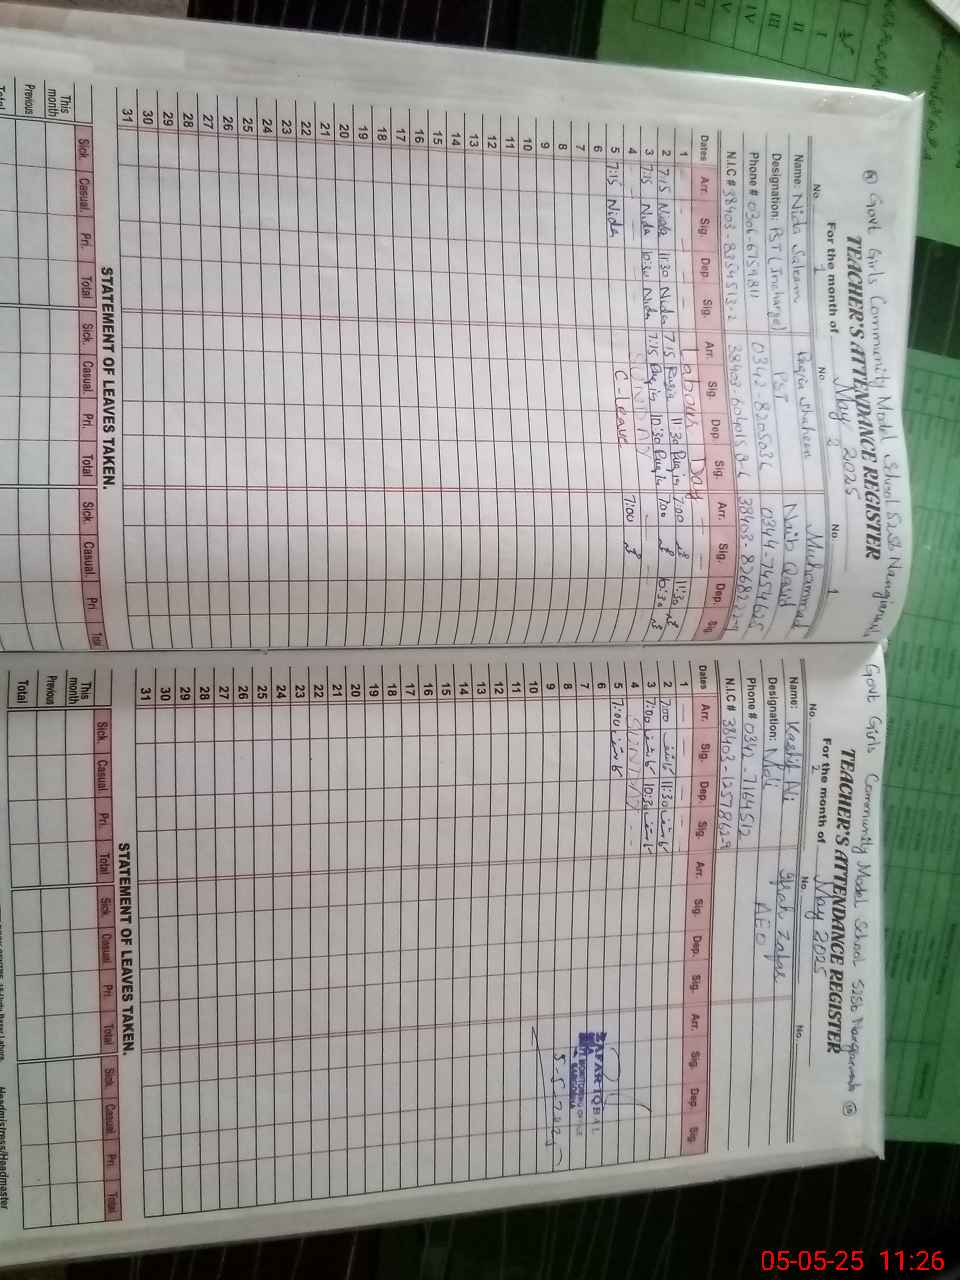 Govt Girls Community Model School 52SB Nangianwala
TEACHER'S ATTENDANCE REGISTER
For the month of May 2025
No. 1 No. 2 No. 1
Name: Nida Saleem Ruqia Shaheen Muhammad
Designation: PST (Incharge) PST Naib Qasid
Phone # 0306-6759811 0342-8205036 0344-7454625
N.I.C # 38403-8354513-2 38403-6040159-6 38403-8268222-9
Dates Arr. Sig. Dep. Sig. Arr. Sig. Dep. Sig. Arr. Sig. Dep. Sig.
1 — — — — Labour Day — —
2 7:15 Nida 11:30 Nida 7:15 Ruqia 11:30 Ruqia 7:00 11:30
3 7:15 Nida 10:30 Nida 7:15 Ruqia 10:30 Ruqia 7:00 10:30
4 SUNDAY
5 7:15 Nida C-Leave 7:00
6
7
8
9
10
11
12
13
14
15
16
17
18
19
20
21
22
23
24
25
26
27
28
29
30
31
STATEMENT OF LEAVES TAKEN.
Sick. Casual. Pri. Total Sick. Casual. Pri. Total Sick. Casual. Pri. Total
This month
Previous
Total
Govt Girls Community Model School 52SB Nangianwala
TEACHER'S ATTENDANCE REGISTER
For the month of May 2025
No. 2 No. No.
Name: Kashif Ali Iffah Zafar
Designation: Mali AEO
Phone # 0342-7164512
N.I.C # 38403-1257862-9
Dates Arr. Sig. Dep. Sig. Arr. Sig. Dep. Sig. Arr. Sig. Dep. Sig.
1 — — — —
2 7:00 کاشف 11:30 کاشف
3 7:00 کاشف 10:30 کاشف
4 SUNDAY
5 7:00 کاشف
6
7
8
9
10
11
12
13
14
15
16
17
18
19
20
21
22
23
24
25
26
27
28
29
30
31
ZAFAR IQBAL
5-5-2025
STATEMENT OF LEAVES TAKEN.
Sick. Casual. Pri. Total Sick. Casual Pri. Total Sick. Casual. Pri. Total
This month
Previous
Total
Headmistress/Headmaster
I
II
III
IV
V
05-05-25 11:26